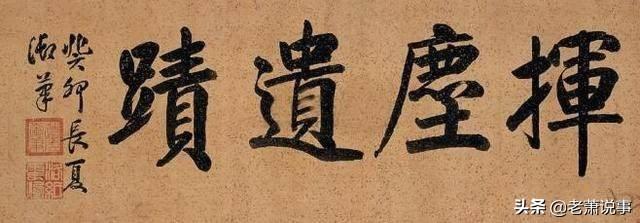 揮塵遺蹟
癸卯長夏
御筆
头条 @老萧说事